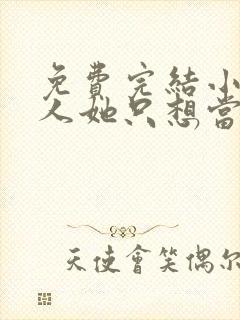 免費完結小
人她只想當
天使會笑偶尔